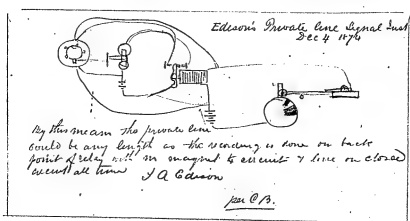 Edison's Private line Signal Inst
Dec 4 1874
By this means the private line
could be any length as the recording is done on back
point of relay with magnet to circuit & line on closed
circuit all time T A Edison
per C B.